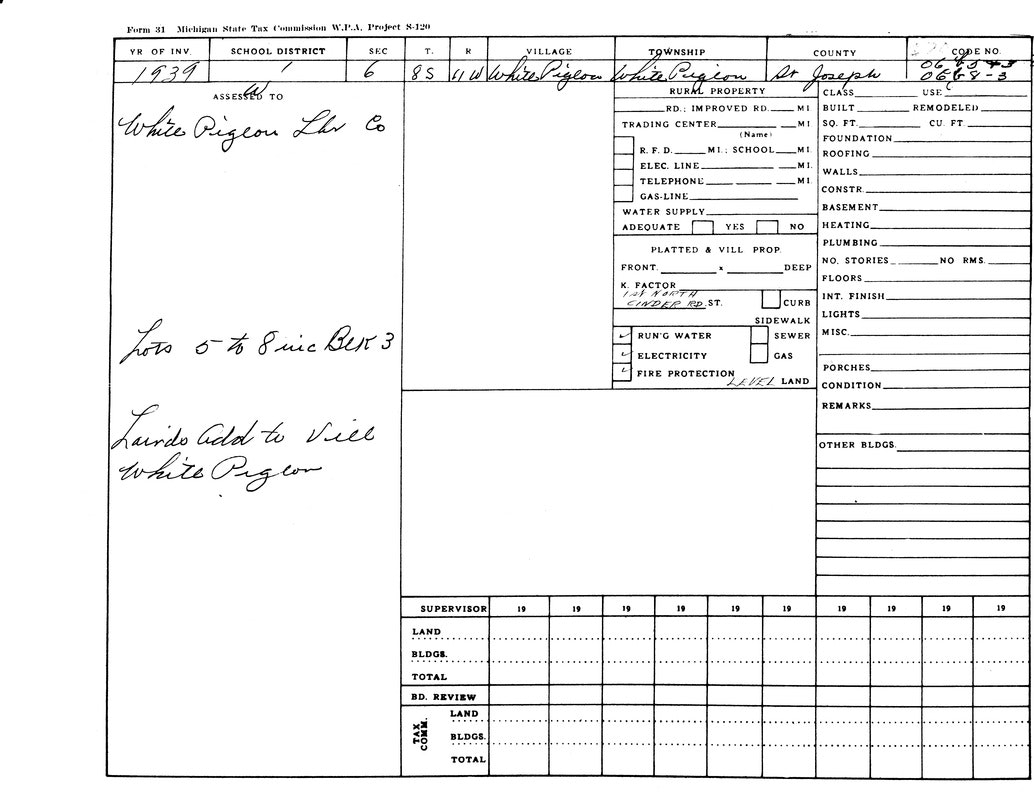 Form 31 Michigan State Tax Commission W.P.A. Project S-120
YR OF INV. SCHOOL DISTRICT SEC T. R VILLAGE TOWNSHIP COUNTY CODE NO.
1939 1 6 8S 11W White Pigeon White Pigeon St Joseph
0668-3
ASSESSED TO
White Pigeon Lbr Co
Lots 5 to 8 inc Blk 3
Lairds Add to Vill
White Pigeon
RURAL PROPERTY
RD.; IMPROVED RD. MI
TRADING CENTER MI
(Name)
R. F. D. MI.; SCHOOL MI.
ELEC. LINE MI.
TELEPHONE MI.
GAS-LINE
WATER SUPPLY
ADEQUATE YES NO
PLATTED & VILL PROP.
FRONT. x DEEP
K. FACTOR
NORTH
CINDER RD. ST. CURB
SIDEWALK
RUN'G WATER SEWER
ELECTRICITY GAS
FIRE PROTECTION
LEVEL LAND
CLASS USE
BUILT REMODELED
SQ. FT. CU. FT.
FOUNDATION
ROOFING
WALLS
CONSTR.
BASEMENT
HEATING
PLUMBING
NO. STORIES NO RMS.
FLOORS
INT. FINISH
LIGHTS
MISC.
PORCHES
CONDITION
REMARKS
OTHER BLDGS.
SUPERVISOR 19 19 19 19 19 19 19 19 19 19
LAND
BLDGS.
TOTAL
BD. REVIEW
TAX COMM.
LAND
BLDGS.
TOTAL